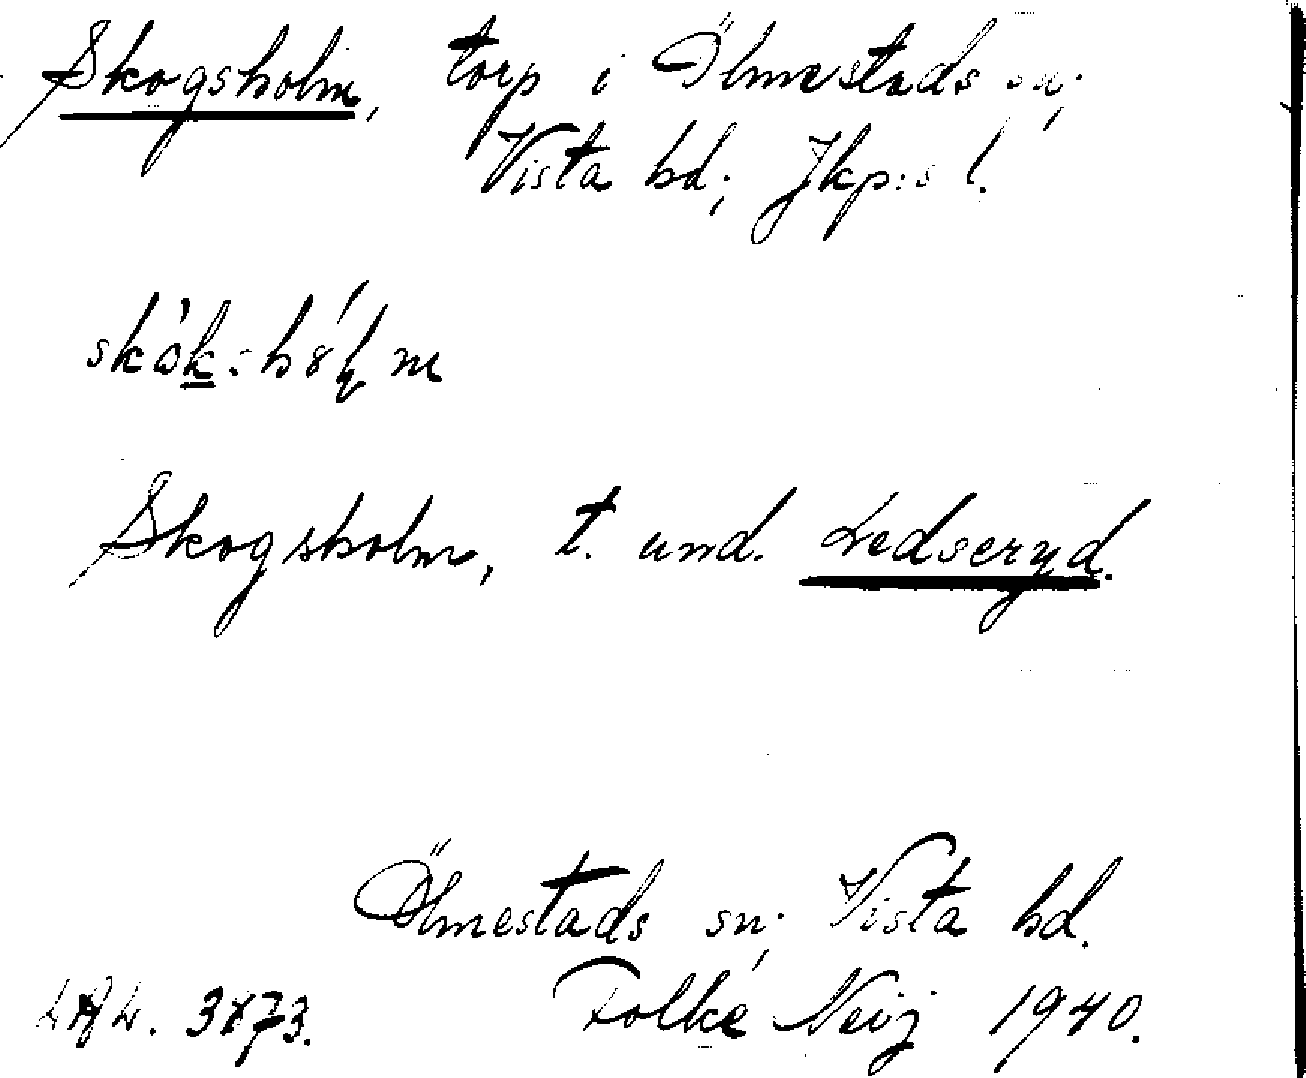 Skogsholm, torp i Ölmestads sn;
Vista hd; Jkp:s l.
Skogsholm, t. und. Ledseryd.
Ölmestads sn; Vista hd.
Folke Neij 1940.